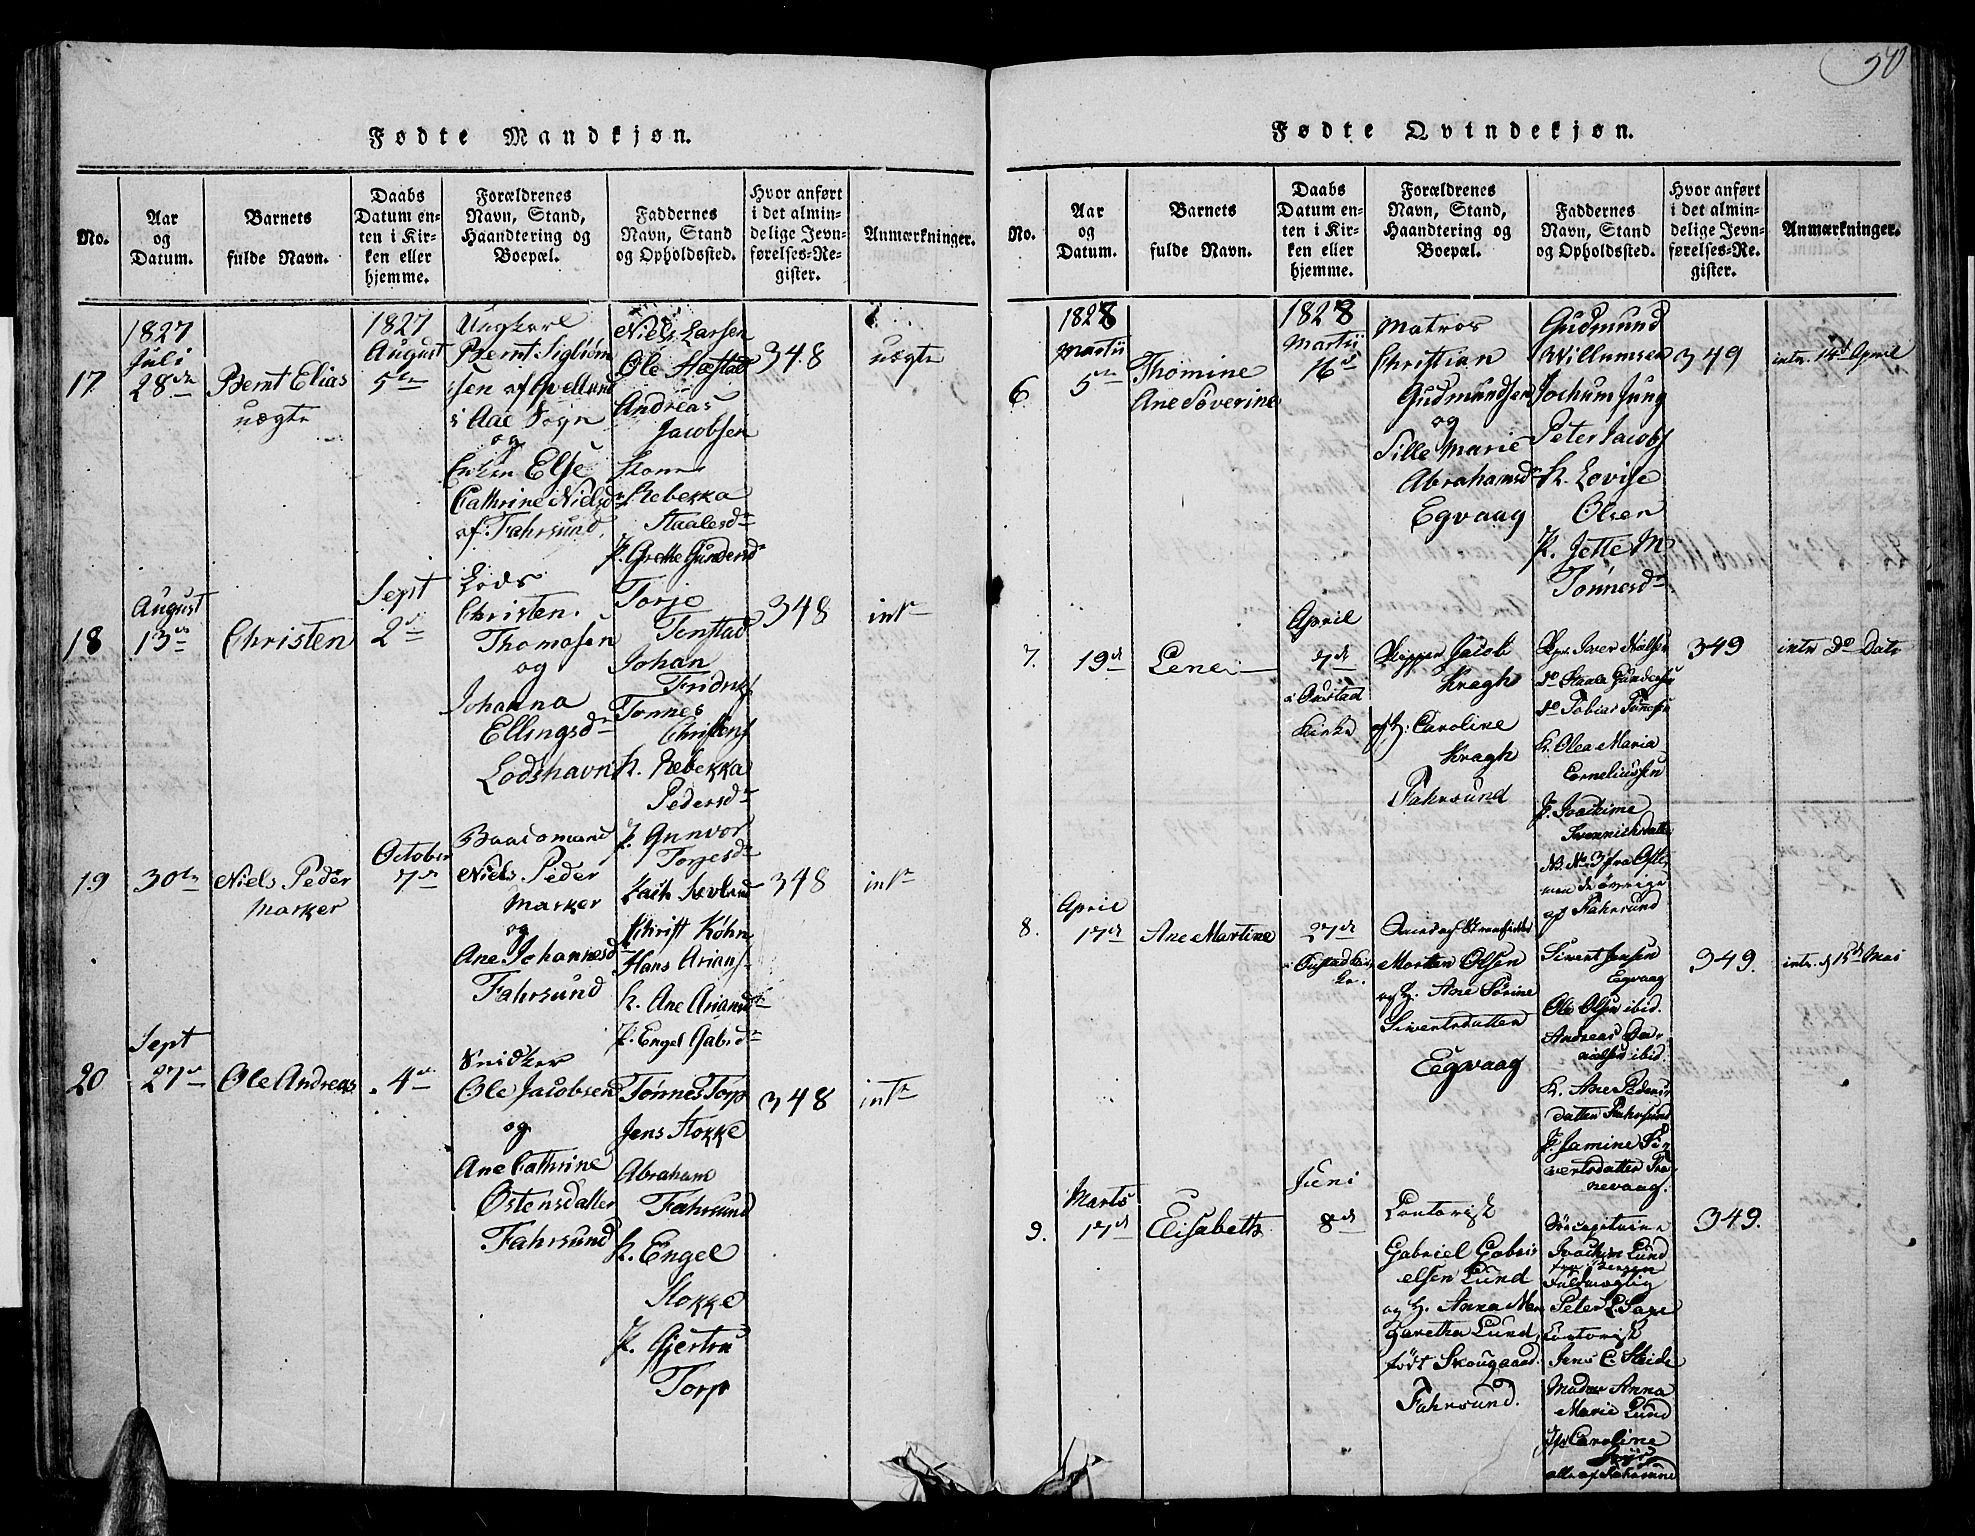 50
Fødte Mandkjøn.
No.
Aar
og
Datum.
Barnets
fulde Navn.
Daabs
Datum en-
ten i Kir-
ken eller
hjemme.
Forældrenes
Navn, Stand,
Haandtering og
Boepæl.
Faddernes
Navn, Stand
og Opholdssted.
Hvor anført
i det almin-
delige Jevn-
førelses-Re-
gister.
Anmærkninger.
17
1827
Juli
28de
Bernt Elias
uægte
1827
August
5te
Ungkarl
Bernt Sigbiørn
sen af
i Aae Sogn
og
Enken Else
Cathrine Nielsd
af Fahrsund
Niels Larsen
Ole Hæstad
Andreas
Jacobsen
Rebekka
Staalesdr
P. Grethe Gundersdr
348
uægte
18
August
13de
Christen
Sept
2de
Lods
Christen
Thomasen
og
Johanna
Ellingsdr
Lodshavn
Torje
Tenstad
Johan
Fridriks
Tønnes
Christens
K. Rebekka
Pedersdr
P. Gunvor
Torjesdr
348
intr
19
30te
Niels Peder
Marker
October
7de
Baadsmand
Niels Peder
Marker
og
Ane Johannesd
Fahrsund
Christ Køhn
Hans Arians
K. Ane Ariansdr
P. Engel Gabrdr
348
intr
20
Sept
27de
Ole Andreas
4de
Snidker
Ole Jacobsen
og
Ane Cathrine
Ostensdatter
Fahrsund
Tønnes Torp
Jens Stokke
Abraham
Fahrsund
K. Engel
Stokke
P. Gjertru
Torp
348
intr
Fødte Qvindekjøn.
No.
Aar
og
Datum.
Barnets
fulde Navn.
Daabs
Datum en-
ten i Kir-
ken eller
hjemme.
Forældrenes
Navn, Stand,
Haandtering og
Boepæl.
Faddernes
Navn, Stand
og Opholdssted.
Hvor anført
i det almin-
delige Jevn-
førelses-Re-
gister.
Anmærkninger.
6
1828
Martii
5te
Thomine
Ane Söverine
1828
Martii
16de
Matros
Christian
Gudmundsen
og
Sille Marie
Abrahamsdr
Egvaag
Gudmund
Willumsen
Jochum Jung
Peter Jacobs
K. Lovise
Olsen
P. Jette M
Tönnesdr
349
intr. 14d April
7.
19d
Lene
April
7de
i
Kirke
Skipper Jacob
Kragh
og H. Caroline
Kragh
Fahrsund
Skpr. Iver Nielsen
do Staale Gundersen
do Tobias Tönnesen
K. Olea Maria
Corneliussen
P. Joachime
No 3 fra
de øvrige
af Fahrsund
349
intr. do Dato
8.
April
17de
Ane Martine
27de
Morten Olsen
og H. Ane Sörine
Sivertsdatter
Egvaag
Sivert Jensen
Egvaag
Ole Olsen ibid.
Andreas Da-
nielsen ibid.
K. Ane Peders
datter Fahrsund
P. Jamine Si-
vertsdatter
349.
intr. d 15d Mai
9.
Marts
17de
Elisabeth
Juni
8de
Contorist
Gabriel Gabri
elsen Lund
og H. Anna Mar
garetha Lund,
født Skougaard.
Fahrsund.
Joachim Lund
fra Bergen
Fuldmægtig
Contorist
Jens C.
Madam Anna
Marie Lund
Jfr Caroline
alle af Fahrsund
349.